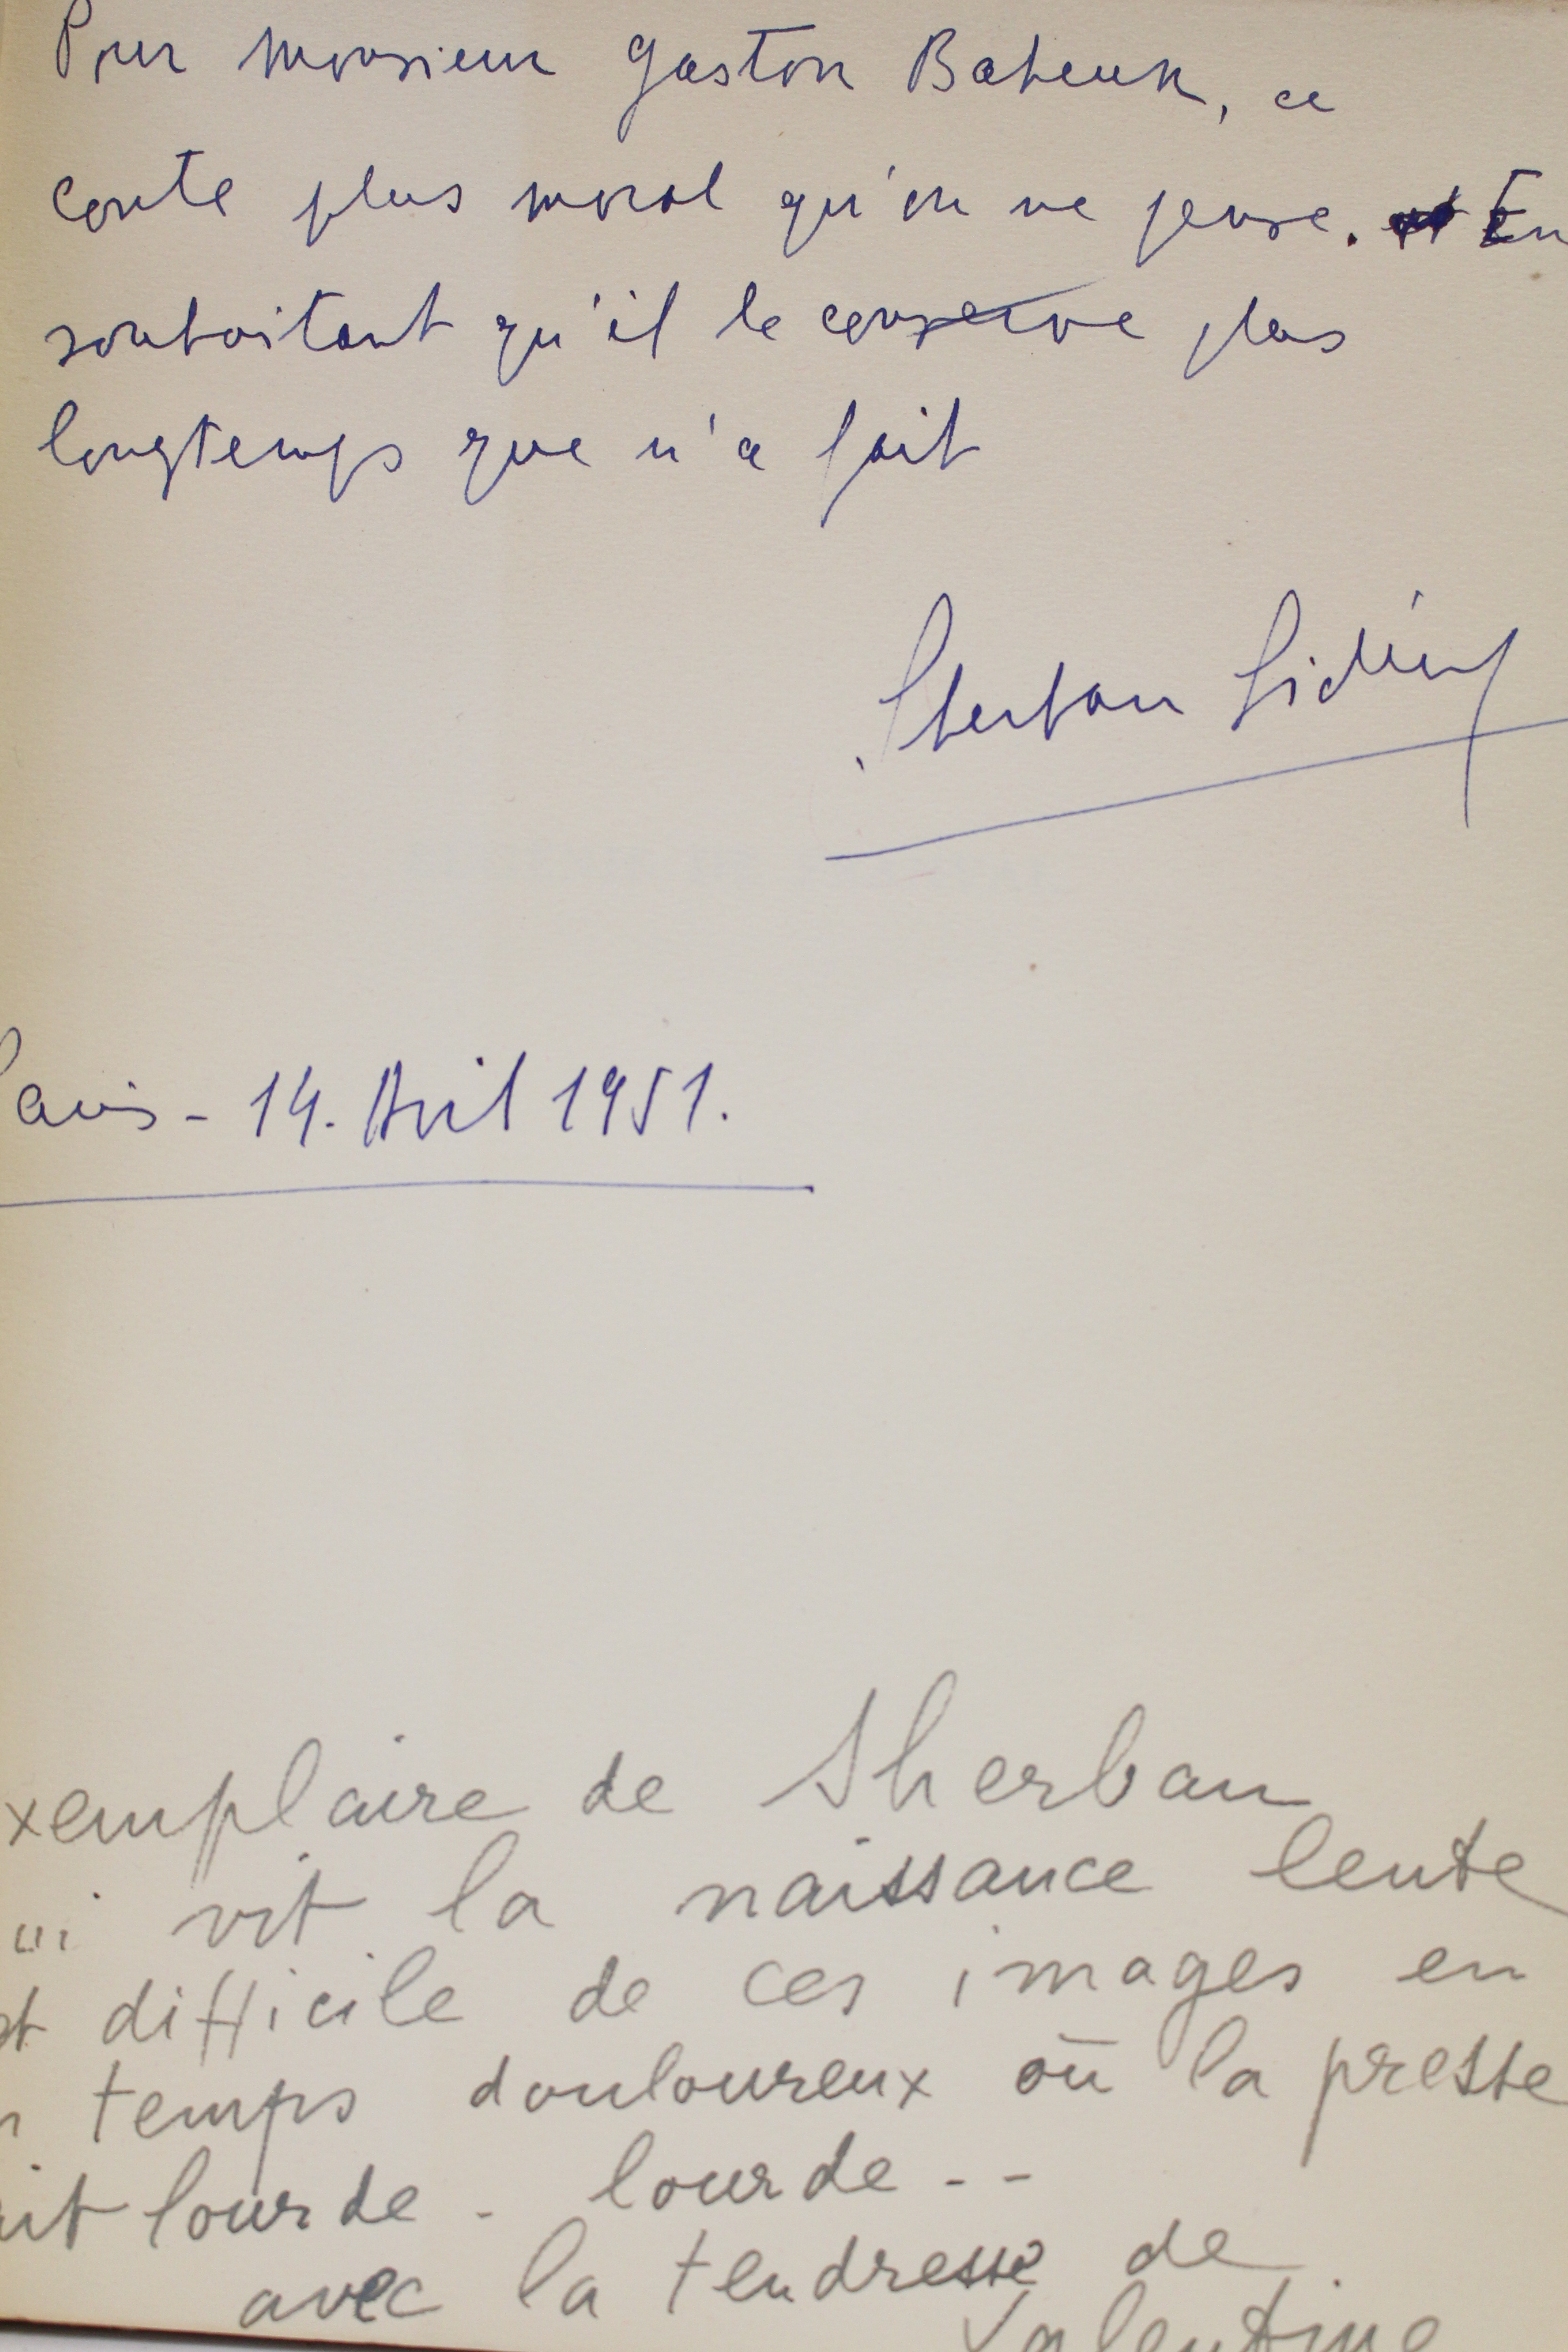 Pour Monsieur Gaston Bateux, ce
conte plus moral qu'on ne pense. En
souhaitant qu'il le conserve plus
longtemps que n'a fait
Sherban Sidéry
Paris - 14. Avril 1951.
xemplaire de Sherban
ui vit la naissance lente
et difficile de ces images en
n temps douloureux où la presse
ait lourde - lourde - -
avec la tendresse de
Valentine